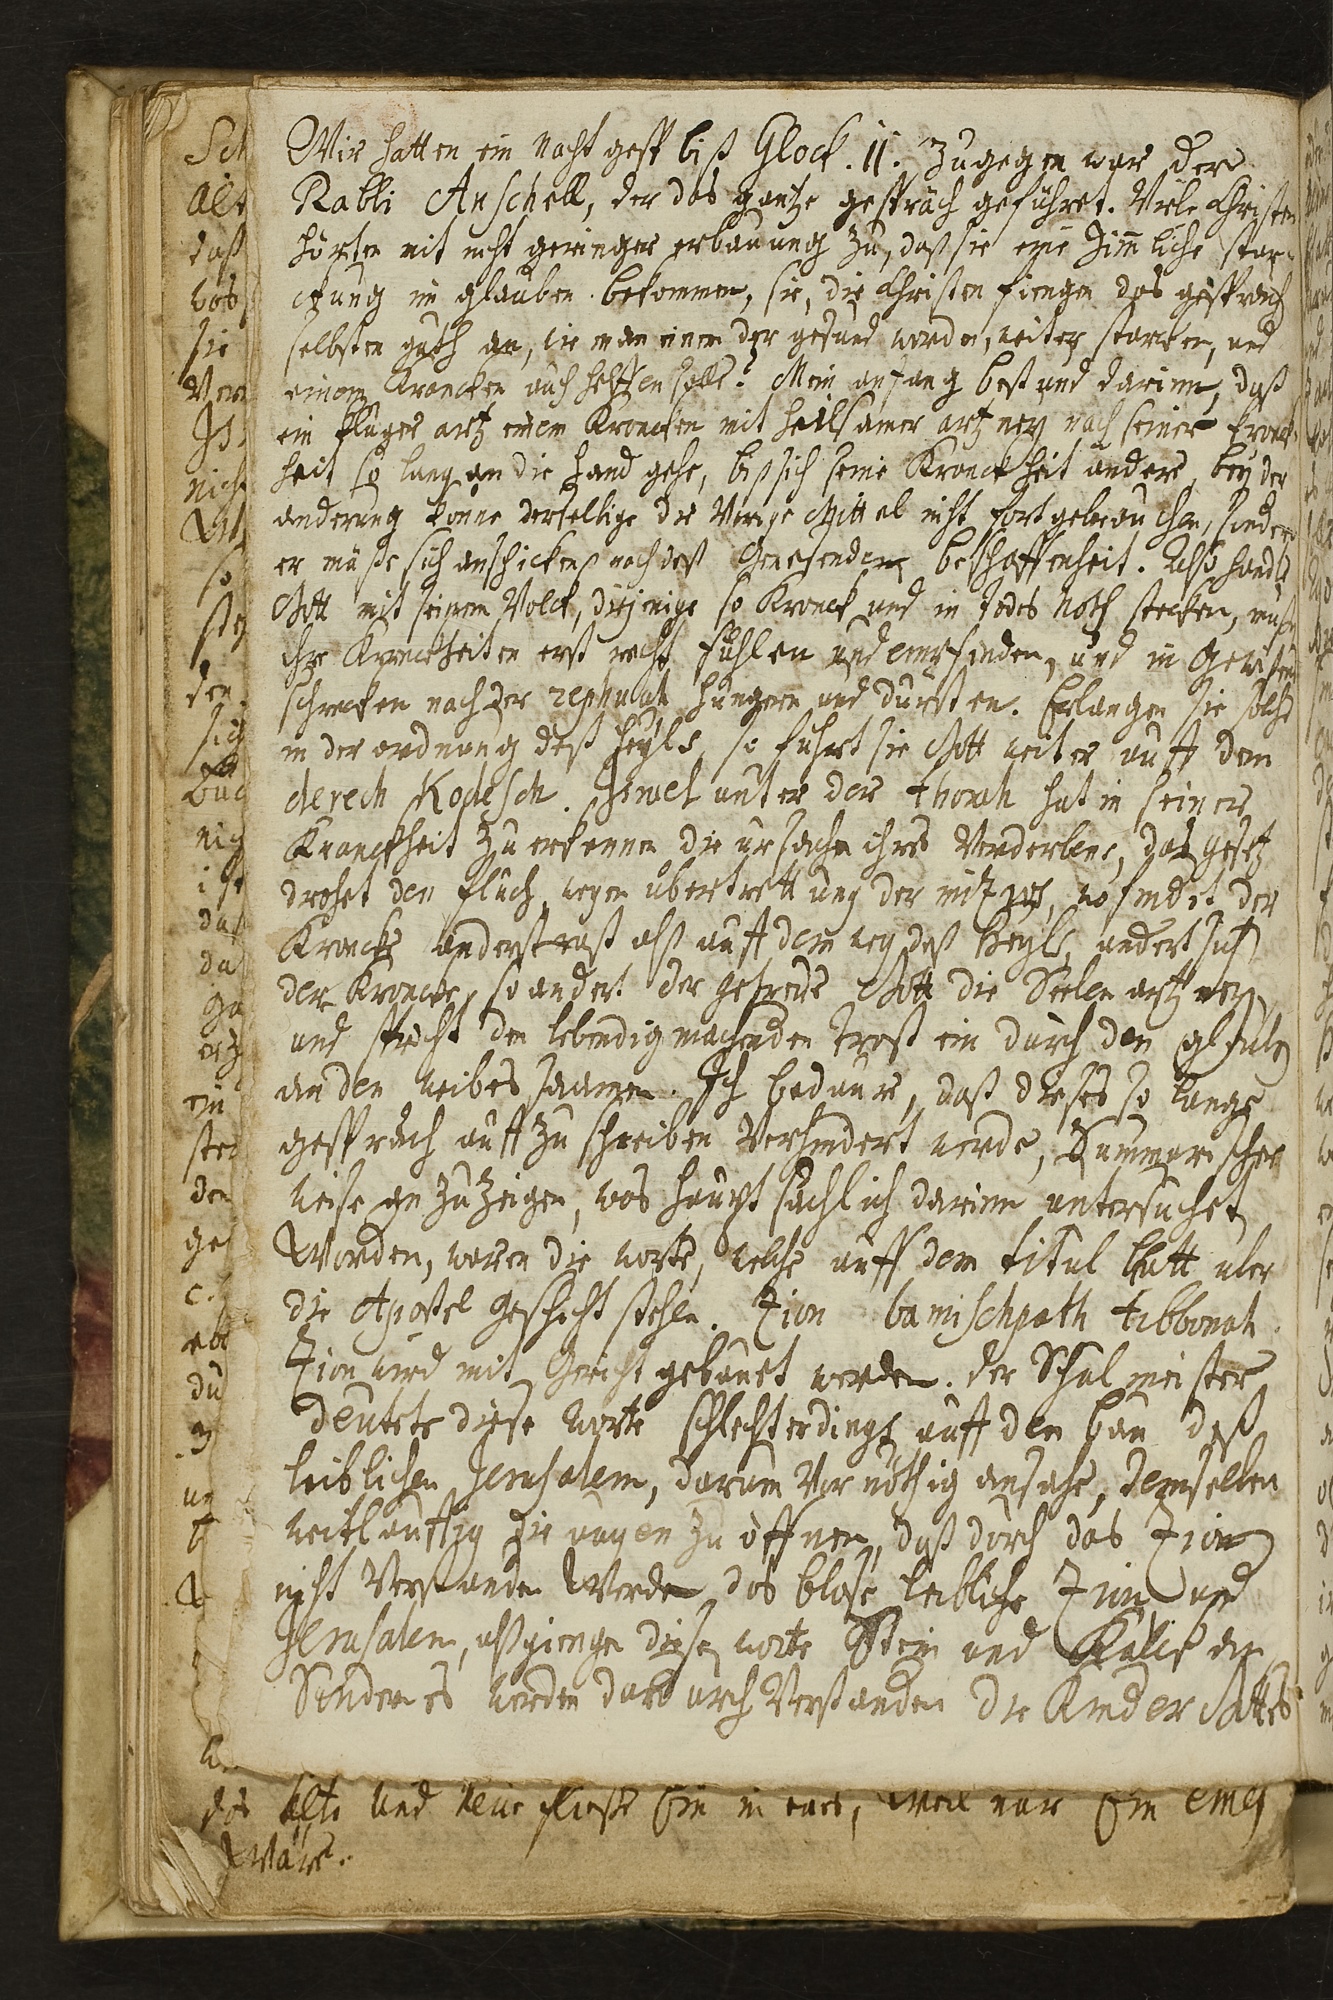 Wir hatten ein Nacht gesp biß Glock. 11. Zugegen war der
Rabbi Anschell, der das gantze gespräch geführet. Viele Christen
hörten mit nicht geringer erbauung zu, daß sie eine Zimliche star-
ckung im glauben bekommen, sie, die Christen fiengen das gespräch
selbsten an, wie man einen der gesund worden, weiter starcken, und
einem Krancken auch helffen solle? Mein anfang bestund darinn, daß
ein kluger artz einem Krancken mit heilsamer artzney nach seiner kranck-
heit so lang an die hand gehe, biß sich seine Kranckheit andere, bey der
anderung könne derselbige die Vorige Mittel nicht fortgebrauchen, sondern
er müße sich anschicken nach deß Genesenden beschaffenheit. Also handle
Gott mit seinem Volck, diejenige so Kranck und in Todes Noth stecken, müßen
ihre Kranckheiten erst recht fühlen und empfinden, und in Gewißens
schrecken nach der rephuah hungern und dürsten. Erlangen sie solche
in der ordnung deß Heyls, so führt sie Gott weiter auff dem
derech Kodesch. Israel unter der thorah hat in seiner
Kranckheit zu erkennen die ursache ihres Verderbens, das gesetz
drohet den fluch wegen übertrettung der mitzvos, wo findet der
Krancke anderst rast als auff dem weg deß Heyls, andert sich
der Krancke, so andert der getreue Gott die Seelen artzney
und spricht den lebendigmachenden trost ein durch den glauben
an den weibes saamen. Ich bedaure, daß dieses so lange
gespräch auff zu schreiben Verhindert werde, Summarischer
weise anzuzeigen, was hauptsächlich darinn untersuchet
Worden, waren die worte, welche auff dem titul blatt uber
die Apostel geschicht stehen. Zion bamischpath tibbonah.
Zion wird mit Gericht gebauet werden. der Schulmeister
deutete diese worte schlechterdings auff den bau deß
leiblichen Jerusalem, darum Vor nöthig ansahe, demselben
weitläufftig die augen zu öffnen, daß durch das Zion
nicht Verstanden Werde das blose leibliche Zion und
Jerusalem, als giengen diese worte Stein und Kalck an
Sondern es werden dardurch Verstanden die Kinder Gottes
das alte und neue fließe Ein in eins, weil nur Ein einig
Wäre.